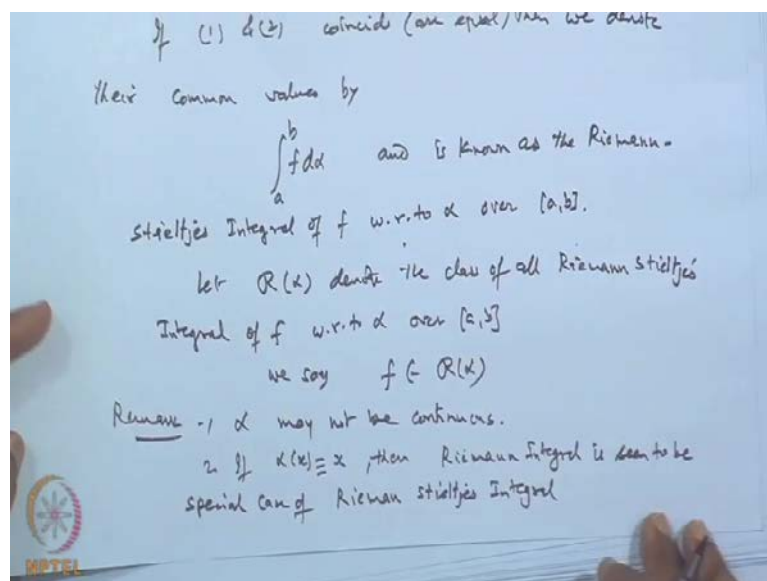 If (1) & (2) coincide (are equal) then we denote
their common values by
∫ₐᵇ f dα and is known as the Riemann-
Stieltjes Integral of f w.r.to α over [a,b].
Let R(α) denote the class of all Riemann Stieltjes
Integral of f w.r.to α over [a,b]
we say f ∈ R(α)
Remark -1 α may not be continuous.
2. If α(x) ≡ x, then Riemann Integral is seen to be
special case of Rieman Stieltjes Integral
NPTEL